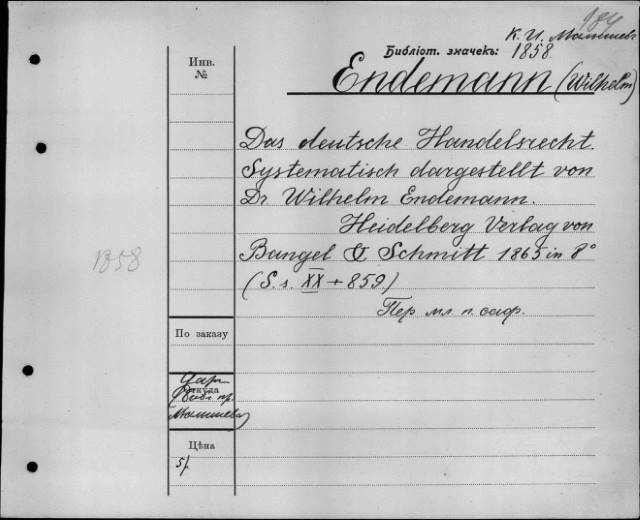 184
К. И. Малышевъ
Библіот. значекъ: 1858.
Инв.
№
Endemann (Wilhelm)
Das deutsche Handelsrecht.
Systematisch dargestellt von
Dr. Wilhelm Endemann.
Heidelberg Verlag von
Bangel & Schmitt 1865 in 8°
(S. s. XX + 859)
Пер мл п. саф.
1858
По заказу
Откуда
Малышева
Цѣна
5/.